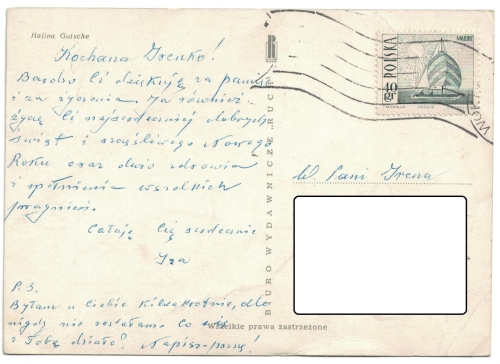 Halina Gutsche
Kochana Irenko!
Bardzo Ci dziękuję za pamięć
i za życzenia. Ja również
życzę Ci najserdeczniej dobrych
Świąt i szczęśliwego Nowego
Roku oraz dużo zdrowia
i spełnienia wszelkich
pragnień.
Całuję Cię serdecznie
Iza
P.S.
Byłam u Ciebie kilkakrotnie, ale
nigdy nie zastałam. Co się
z Tobą działo? Napisz-proszę!
BIURO WYDAWNICZE „RUCH"
Wszelkie prawa zastrzeżone
POLSKA
40 gr
W. Pani Irena